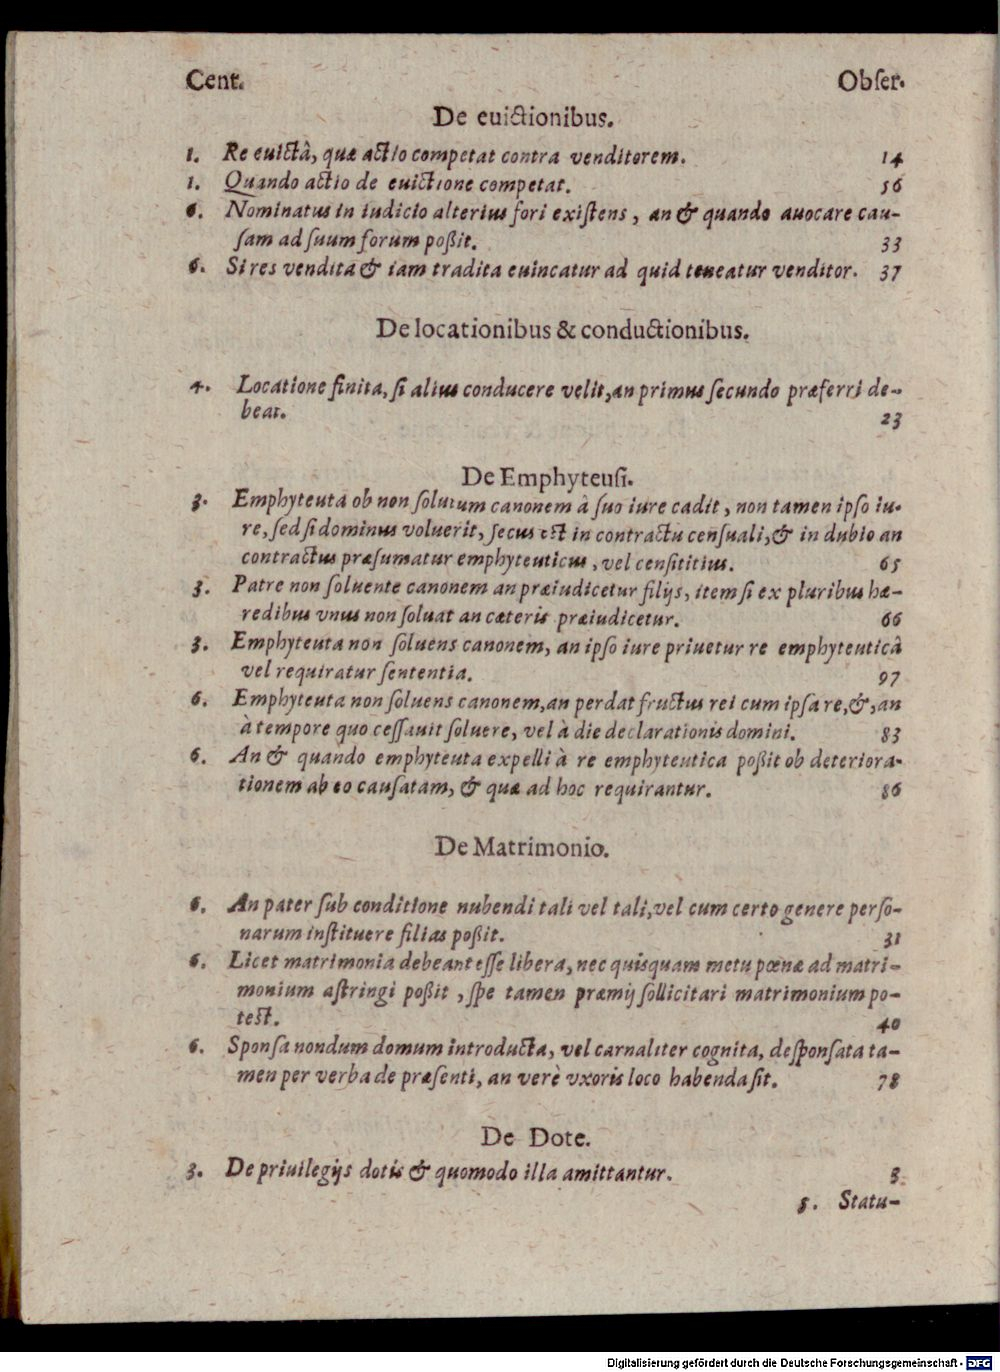 Cent. Obſer.
De euictionibus.
1. Re euictâ, quæ actio competat contra venditorem. 14
1. Quando actio de euictione competat. 56
6. Nominatus in iudicio alterius fori exiſtens, an & quando auocare cau-
ſam ad ſuum forum poßit. 33
6. Si res vendita & iam tradita euincatur ad quid teneatur venditor. 37
De locationibus & conductionibus.
4. Locatione finita, ſi alius conducere velit, an primus ſecundo præferri de-
beat. 23
De Emphyteuſi.
3. Emphyteuta ob non ſolutum canonem à ſuo iure cadit, non tamen ipſo iu-
re, ſed ſi dominus voluerit, ſecus est in contractu cenſuali, & in dubio an
contractus præſumatur emphyteuticus, vel cenſititius. 65
3. Patre non ſoluente canonem an præiudicetur filijs, item ſi ex pluribus hæ-
redibus vnus non ſoluat an cæteris præiudicetur. 66
3. Emphyteuta non ſoluens canonem, an ipſo iure priuetur re emphyteuticâ
vel requiratur ſententia. 97
6. Emphyteuta non ſoluens canonem, an perdat fructus rei cum ipſa re, &, an
à tempore quo ceſſauit ſoluere, vel à die declarationis domini. 83
6. An & quando emphyteuta expelli à re emphyteutica poßit ob deteriora-
tionem ab eo cauſatam, & quæ ad hoc requirantur. 86
De Matrimonio.
6. An pater ſub conditione nubendi tali vel tali, vel cum certo genere perſo-
narum inſtituere filias poßit. 31
6. Licet matrimonia debeant eſſe libera, nec quisquam metu pœnæ ad matri-
monium aſtringi poßit, ſpe tamen præmij ſollicitari matrimonium po-
test. 40
6. Sponſa nondum domum introducta, vel carnaliter cognita, deſponſata ta-
men per verba de præſenti, an verè vxoris loco habenda ſit. 78
De Dote.
3. De priuilegijs dotis & quomodo illa amittantur. 3
5. Statu-
Digitalisierung gefördert durch die Deutsche Forschungsgemeinschaft - DFG